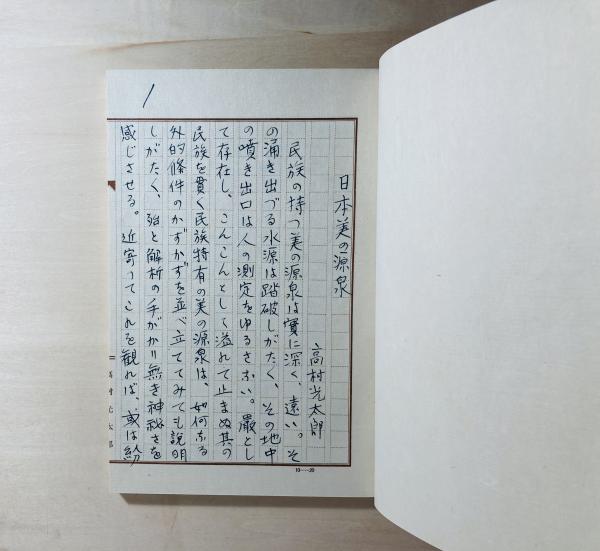 1
日本美の源泉
高村光太郎
民族の持つ美の源泉は實に深く、遠い。そ
の涌き出づる水源は踏破しがたく、その地中
の噴き出口は人の測定をゆるさない。嚴とし
て存在し、こんこんとして溢れて止まぬ其の
民族を貫く民族特有の美の源泉は、如何なる
外的條件のかずかずを並べ立ててみても説明
しがたく、殆と解析の手がかり無き神秘さを
感じさせる。近寄ってこれを観れば、或は紛
高村光太郎
10—20